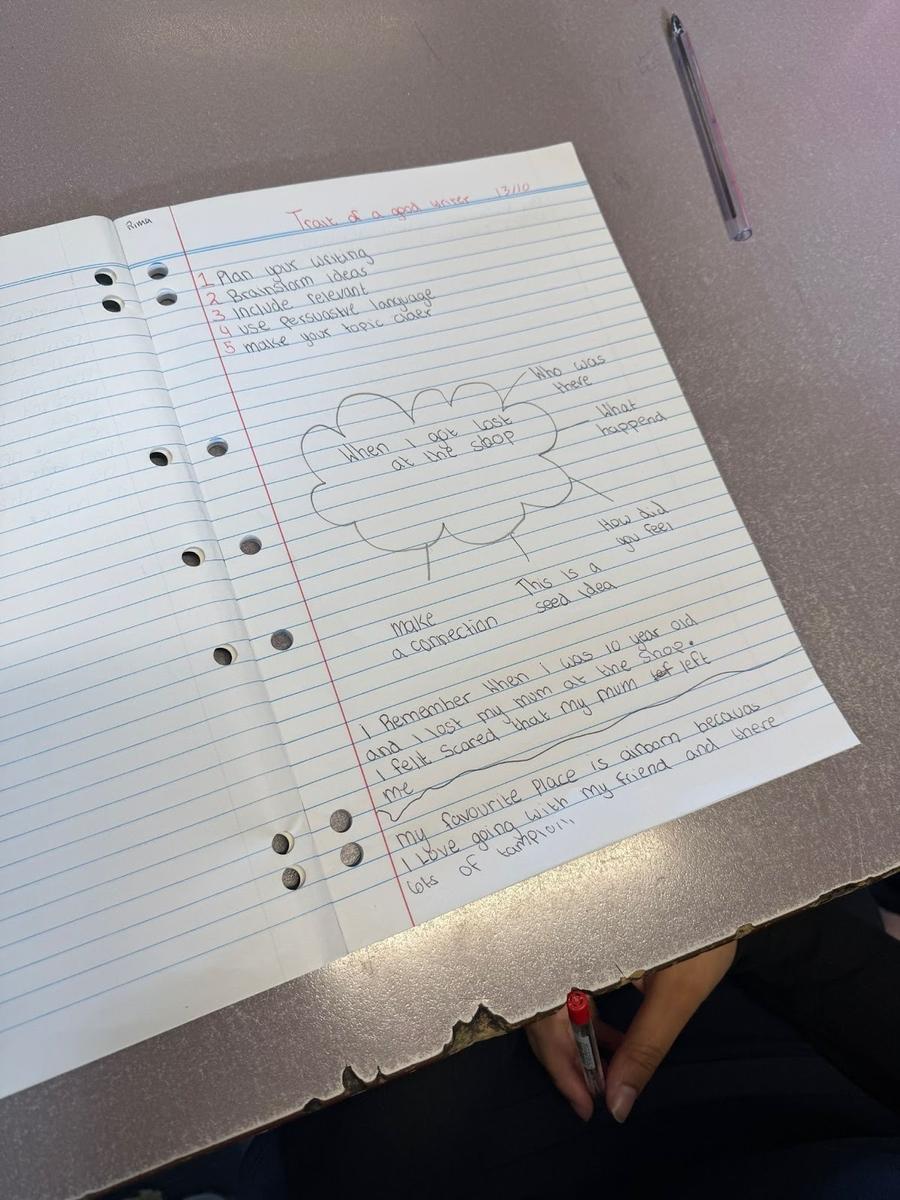 Rima
Trait of a good writer 13/10
1 Plan your writing
2 Brainstorm ideas
3 include relevant
4 use persuastve language
5 make your topic claer
When I got lost
at the shop
Who was
there
What
happend
How did
you feel
This is a
seed idea
make
a connection
I Remember when i was 10 year old
and I lost my mum at the shop.
I felt scared that my mum lef left
me
my favourite place is airborn becauas
I Love going with my friend and there
lots of